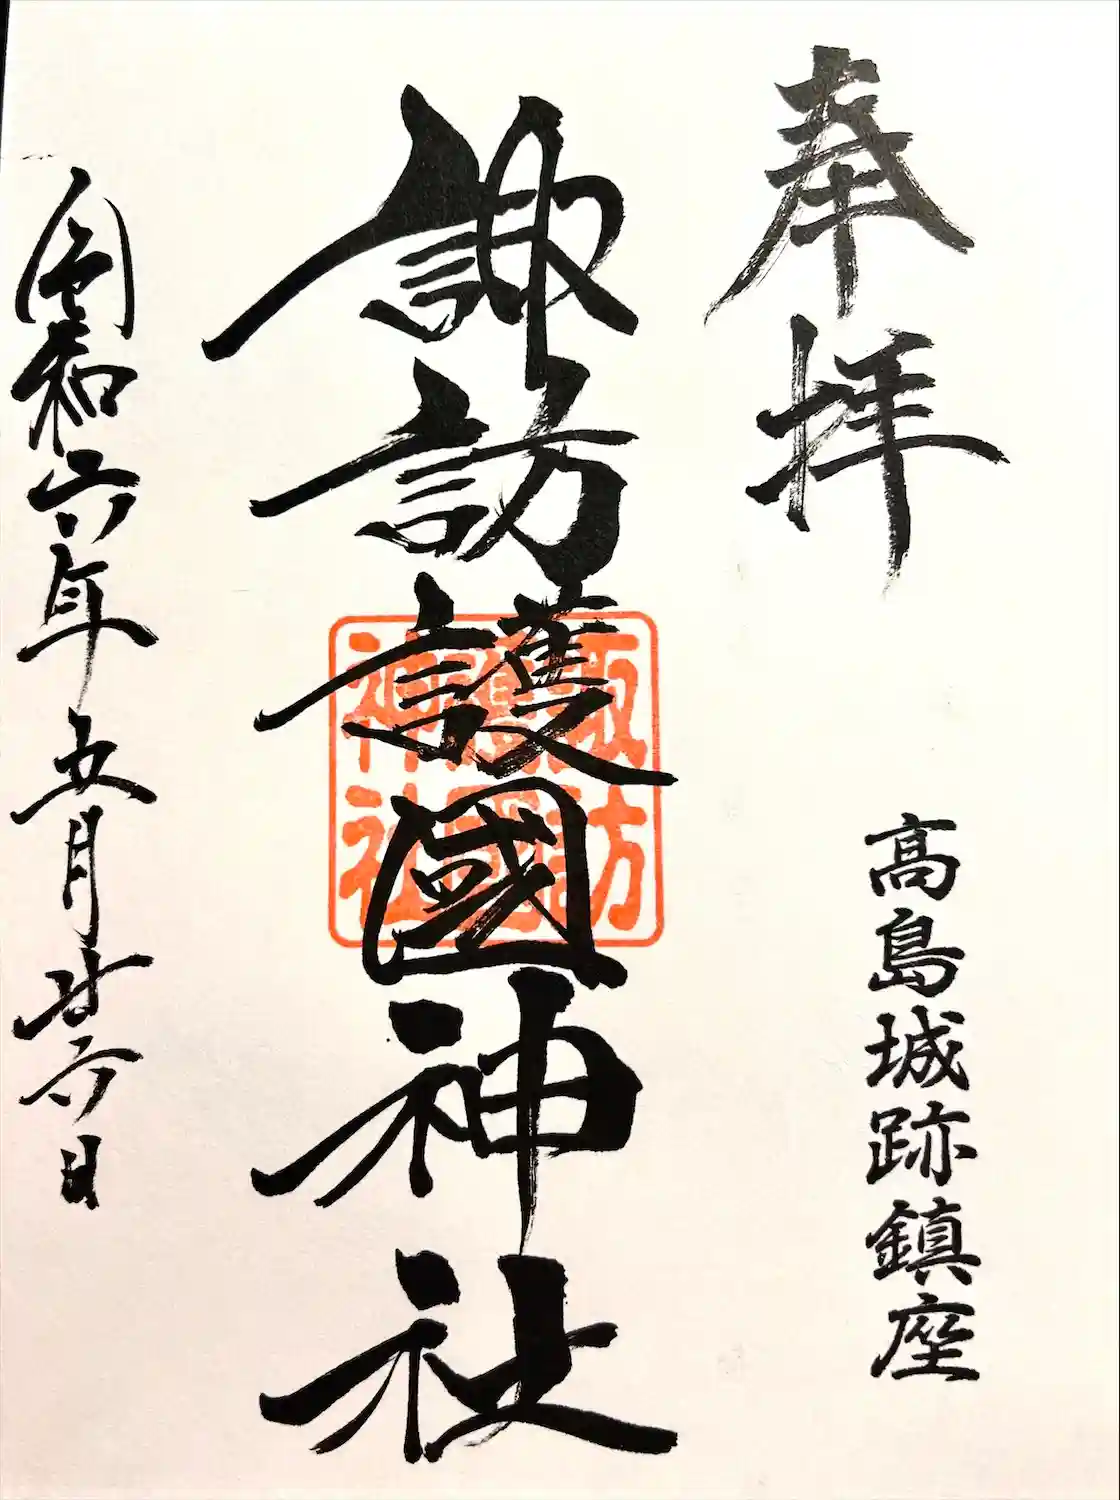 奉拝
高島城跡鎮座
諏訪護國神社
諏訪
護國
神社
令和六年五月廿六日